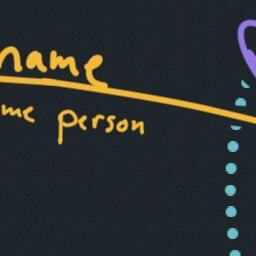 name
me person